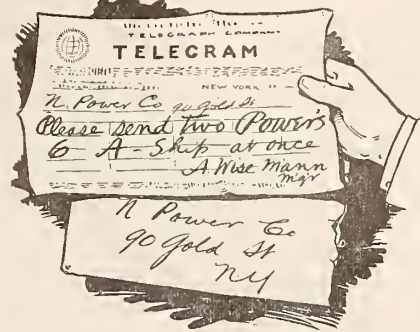 TELEGRAPH COMPANY
TELEGRAM
NEW YORK
N. Power Co 90 Gold St
Please send two Power's
6 A - Ship at once
A Wise Mann
Mgr
N Power Co
90 Gold St
NY